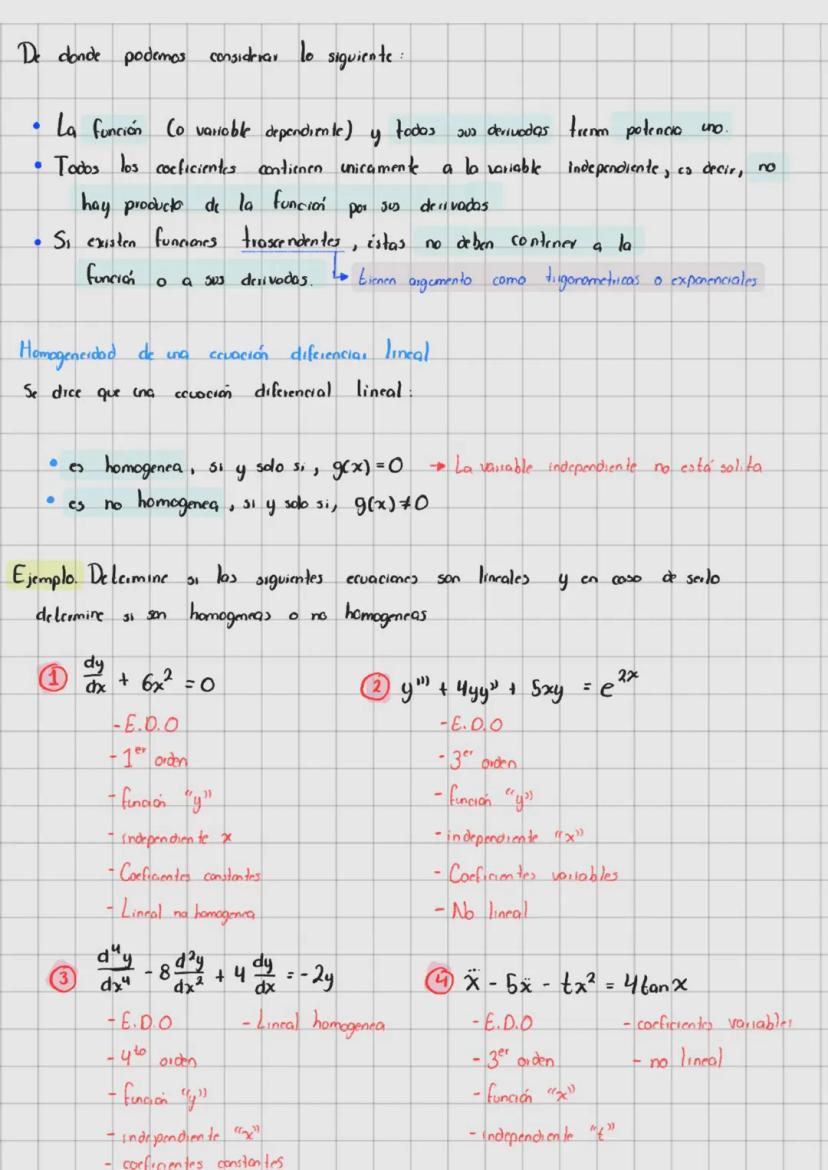 De donde podemos considerar lo siguiente:
• La función (o variable dependiente) y todas sus derivadas tienen potencia uno.
• Todos los coeficientes contienen unicamente a la variable independiente, es decir, no
hay producto de la función por sus derivadas
• Si existen funciones trascendentes, éstas no deben contener a la
función o a sus derivadas. ↳ tienen argumento como trigonometricas o exponenciales
Homogeneidad de una ecuación diferencial lineal
Se dice que una ecuación diferencial lineal:
• es homogenea, si y solo si, g(x)=0 → La variable independiente no está solita
• es no homogenea, si y solo si, g(x)≠0
Ejemplo. Determine si las siguientes ecuaciones son lineales y en caso de serlo
determine si son homogeneas o no homogeneas
① dy/dx + 6x² = 0
- E.D.O
- 1er orden
- función "y"
- independiente x
- Coeficientes constantes
- Lineal no homogenea
② y''' + 4yy'' + 5xy = e^2x
- E.D.O
- 3er orden
- función "y"
- independiente "x"
- Coeficientes variables
- No lineal
③ d⁴y/dx⁴ - 8 d²y/dx² + 4 dy/dx = -2y
- E.D.O
- 4to orden
- función "y"
- independiente "x"
- coeficientes constantes
- Lineal homogenea
④ - 5ẍ - tx² = 4tanx
- E.D.O
- 3er orden
- función "x"
- independiente "t"
- coeficientes variables
- no lineal